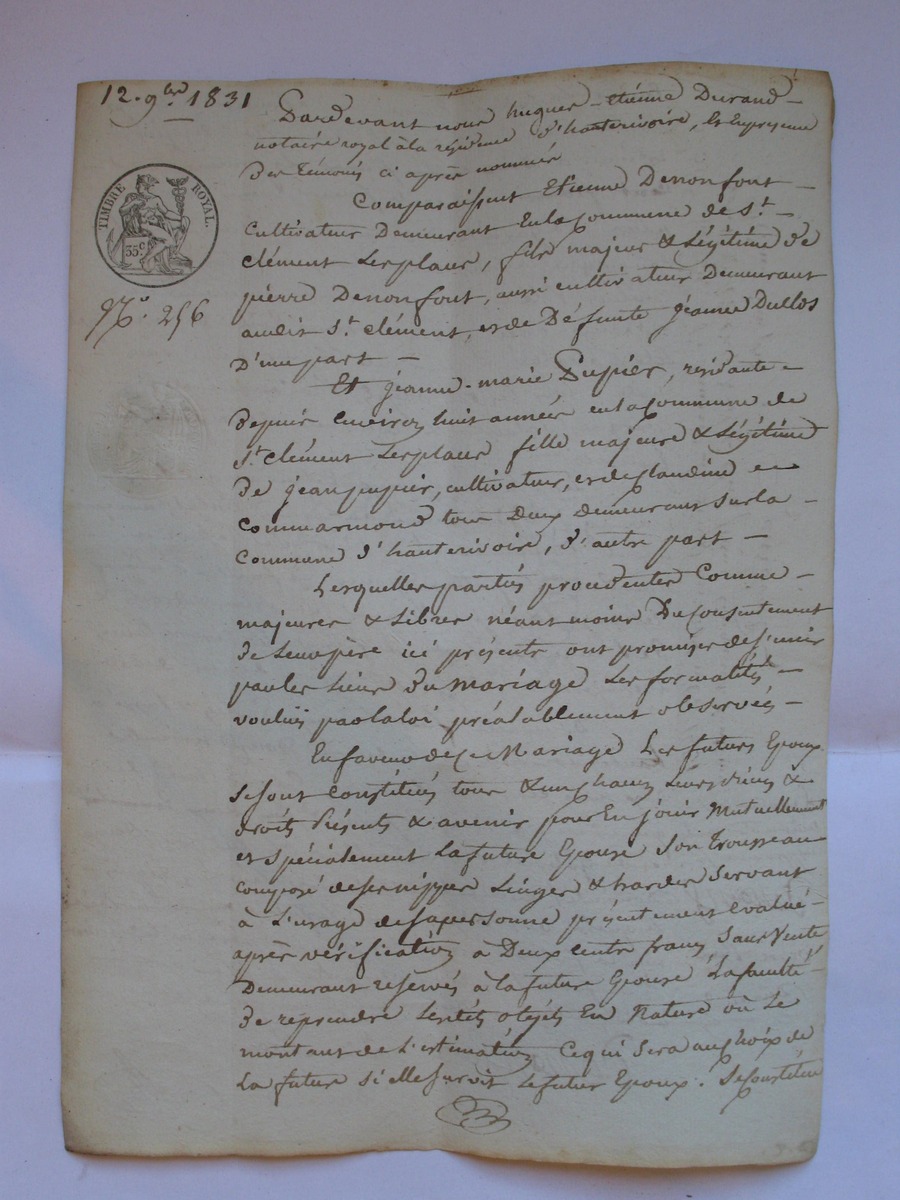 12. 9bre 1831
TIMBRE ROYAL.
35c
No. 256
Pardevant nous hugues-étienne Durand
notaire royal à la résidence d'hauterivoire, et En presence
des Témoins ci après nommés
Comparaissent Etienne Denonfout
Cultivateur Demeurant En la Commune de St.
Clément Les places, fils majeur & Légitime de
pierre Denonfout, aussi cultivateur Demeurant
audit St. Clément, et de Défunte jeanne Dullos
D'une part
Et jeanne-marie Pupier, résidante
depuis environ huit années en la Commune de
St. Clément Les places fille majeure & Légitime
de jean pupier, cultivateur, et de Claudine
Commarmond tous Deux demeurant sur la
Commune d'hauterivoire, d'autre part
Lesquelles parties procedentes Comme
majeures & Libres néant moins Du Consentement
de Leur père ici présents ont promises de s'unir
par les Liens du Mariage Les formalités
voulües par la loi préalablement observées
En faveur de Ce Mariage Les futurs Epoux
se sont Constitués tous & un chacun Leurs biens &
droits Présents & avenir pour En jouir Mutuellement
et spécialement La future Epouse Son Trousseau
Composé de ses nippes Linges & hardes Servant
à L'usage de sa personne présentement évalué
après vérification à Deux Cents francs Sans Vente
Demeurant réservés à la future Epouse La faculté
de reprendre Lesdits objets En Nature ou Le
montant de L'estimation Ce qui Sera au Choix de
La future Si elle survit Le futur Epoux. Se Constitue